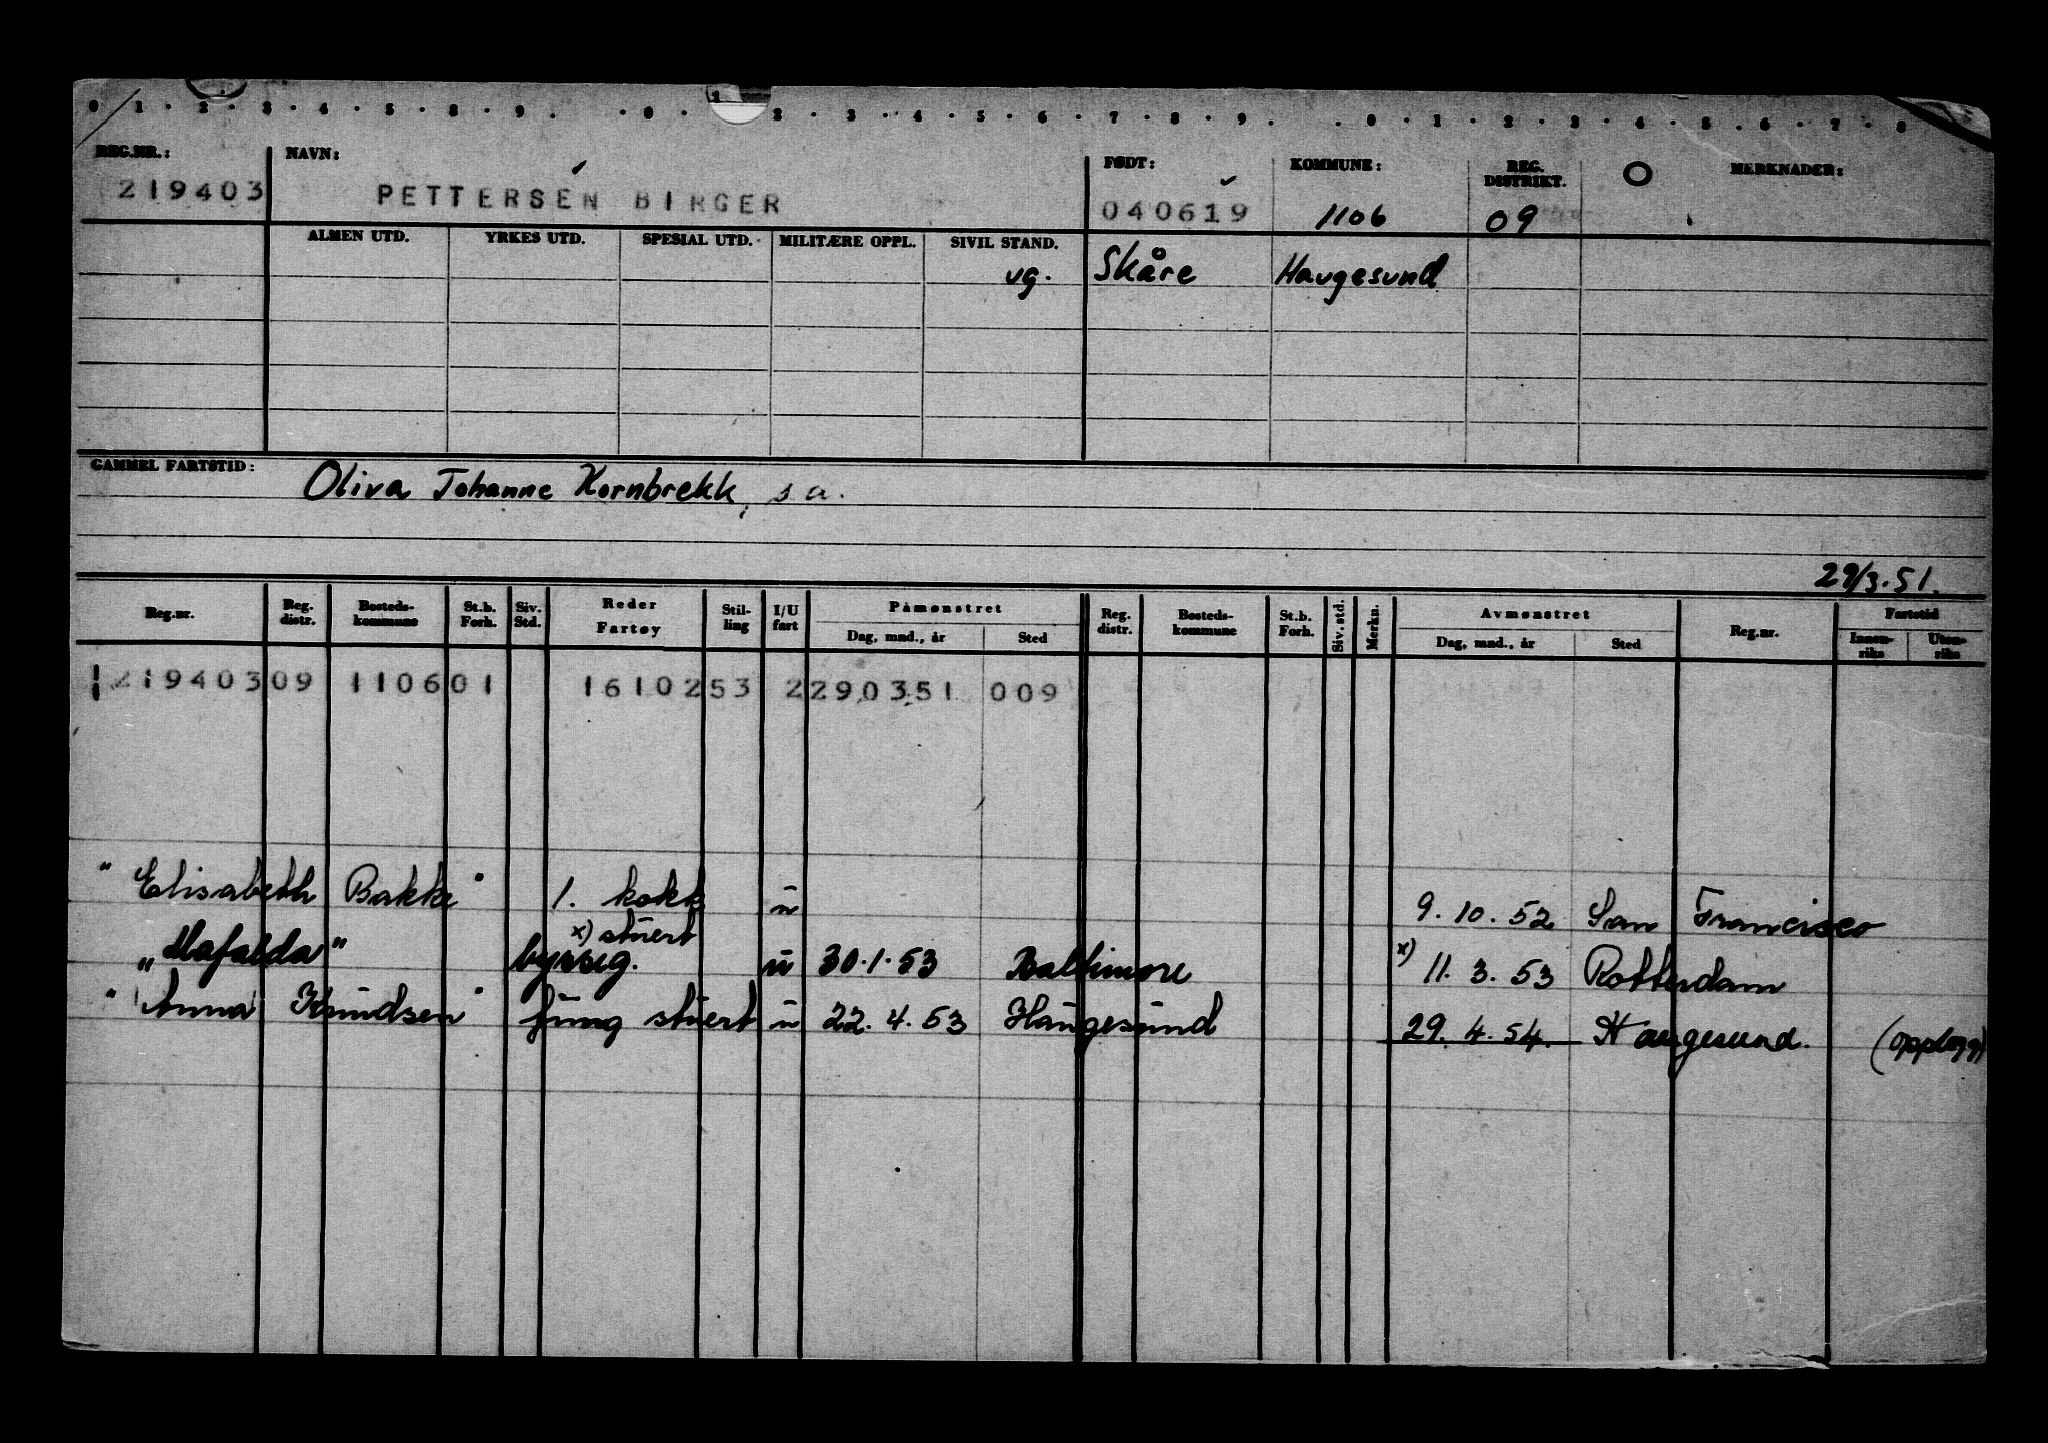 0 / 1 . 2 . 3 . 4 . 5 . 8 . 9 . . 0 . 1 2 . 3 . 4 . 5 . 6 . 7 . 8 . 9 . . 0 . 1 . 2 . 3 . 4 . 5 . 6 . 7 . 8
REG.NR.: NAVN: FØDT: KOMMUNE: REG. DISTRIKT. O MERKNADER:
219403 PETTERSEN BIRGER 040619 1106 09
ALMEN UTD. YRKES UTD. SPESIAL UTD. MILITÆRE OPPL. SIVIL STAND.
ug. Skåre Haugesund
GAMMEL FARTSTID: Oliva Johanne Kornbrekk, s a.
29/3.51.
Reg.nr. Reg. distr. Bosteds-kommune St.b. Forh. Siv. Std. Reder Fartøy Stil-ling I/U fart Påmønstret Dag, mnd., år Sted Reg. distr. Bosteds-kommune St.b. Forh. Siv. std. Merkn. Avmønstret Dag, mnd., år Sted Reg.nr. Fartstid Innen-riks Uten-riks
219403 09 1106 01 16102 53 2 290351 009
"Elisabeth Bakke" 1. kokk u 9.10.52 San Francisco
x) stuert
"Mafalda" bysseg. u 30.1.53 Baltimore x) 11.3.53 Rotterdam
"Anna Knudsen" fung stuert u 22.4.53 Haugesund 29.4.54. Haugesund. (opplagg)